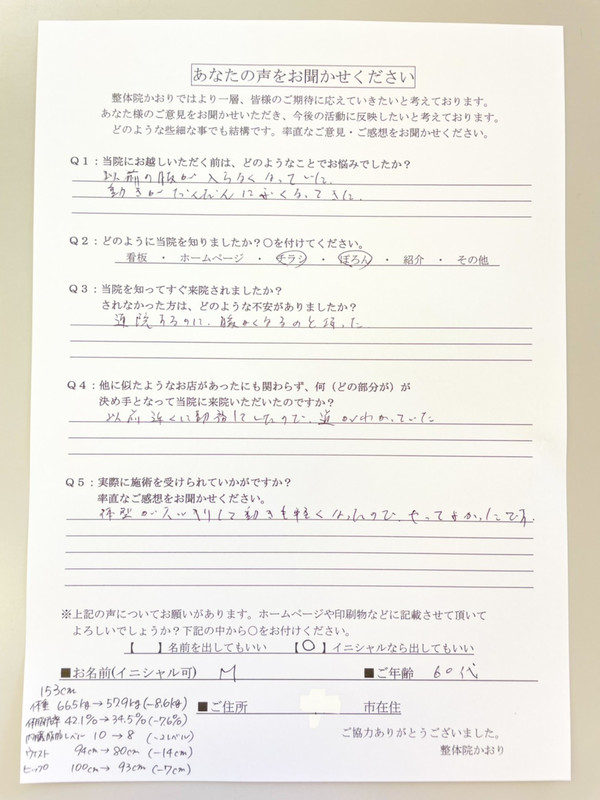 あなたの声をお聞かせください
整体院かおりではより一層、皆様のご期待に応えていきたいと考えております。
あなた様のご意見をお聞かせいただき、今後の活動に反映したいと考えております。
どのような些細な事でも結構です。率直なご意見・ご感想をお聞かせください。
Q1：当院にお越しいただく前は、どのようなことでお悩みでしたか？
以前の服が入らなくなっていた。
動きがだんだんにぶくなってきた。
Q2：どのように当院を知りましたか？〇を付けてください。
看板 ・ ホームページ ・ チラシ ・ ぽろん ・ 紹介 ・ その他
Q3：当院を知ってすぐ来院されましたか？
されなかった方は、どのような不安がありましたか？
通院するのに、暖かくなるのを待った
Q4：他に似たようなお店があったにも関わらず、何（どの部分が）が
決め手となって当院に来院いただいたのですか？
以前近くに勤務していたので、道がわかっていた
Q5：実際に施術を受けられていかがですか？
率直なご感想をお聞かせください。
体型がスッキリして動きも軽くなったので、やってよかったです。
※上記の声についてお願いがあります。ホームページや印刷物などに記載させて頂いて
よろしいでしょうか？下記の中から〇をお付けください。
【 】名前を出してもいい 【〇】イニシャルなら出してもいい
■お名前(イニシャル可) M ■ご年齢 60代
153cm
体重 66.5kg→57.9kg(-8.6kg)
■ご住所 市在住
体脂肪率 42.1%→34.5%(-7.6%)
内臓脂肪レベル 10→8 (-2レベル)
ウエスト 94cm→80cm(-14cm)
ヒップ 100cm→93cm(-7cm)
ご協力ありがとうございました。
整体院かおり